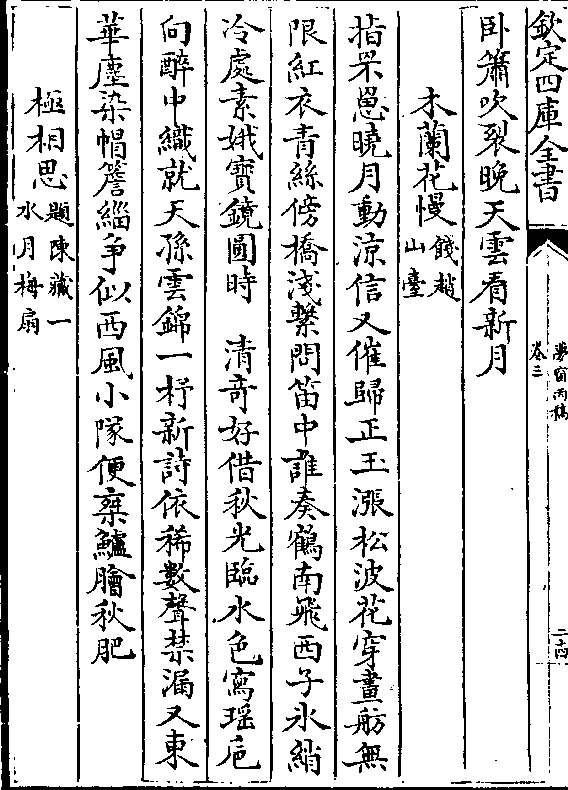 欽定四庫全書
夢窗丙稿
卷三
二十四
卧簫吹裂晚天雲看新月
木蘭花慢
餞趙
山臺
指罘罳曉月動涼信又催歸正玉漲松波花穿畫舫無
限紅衣青絲傍橋淺繫問笛中誰奏鶴南飛西子氷綃
冷處素娥寶鏡圓時　清竒好借秋光臨水色寫瑶巵
向醉中織就天孫雲錦一杼新詩依稀數聲禁漏又東
華塵染帽簷緇争似西風小隊便乘鱸膾秋肥
極相思
題陳藏一
水月梅扇